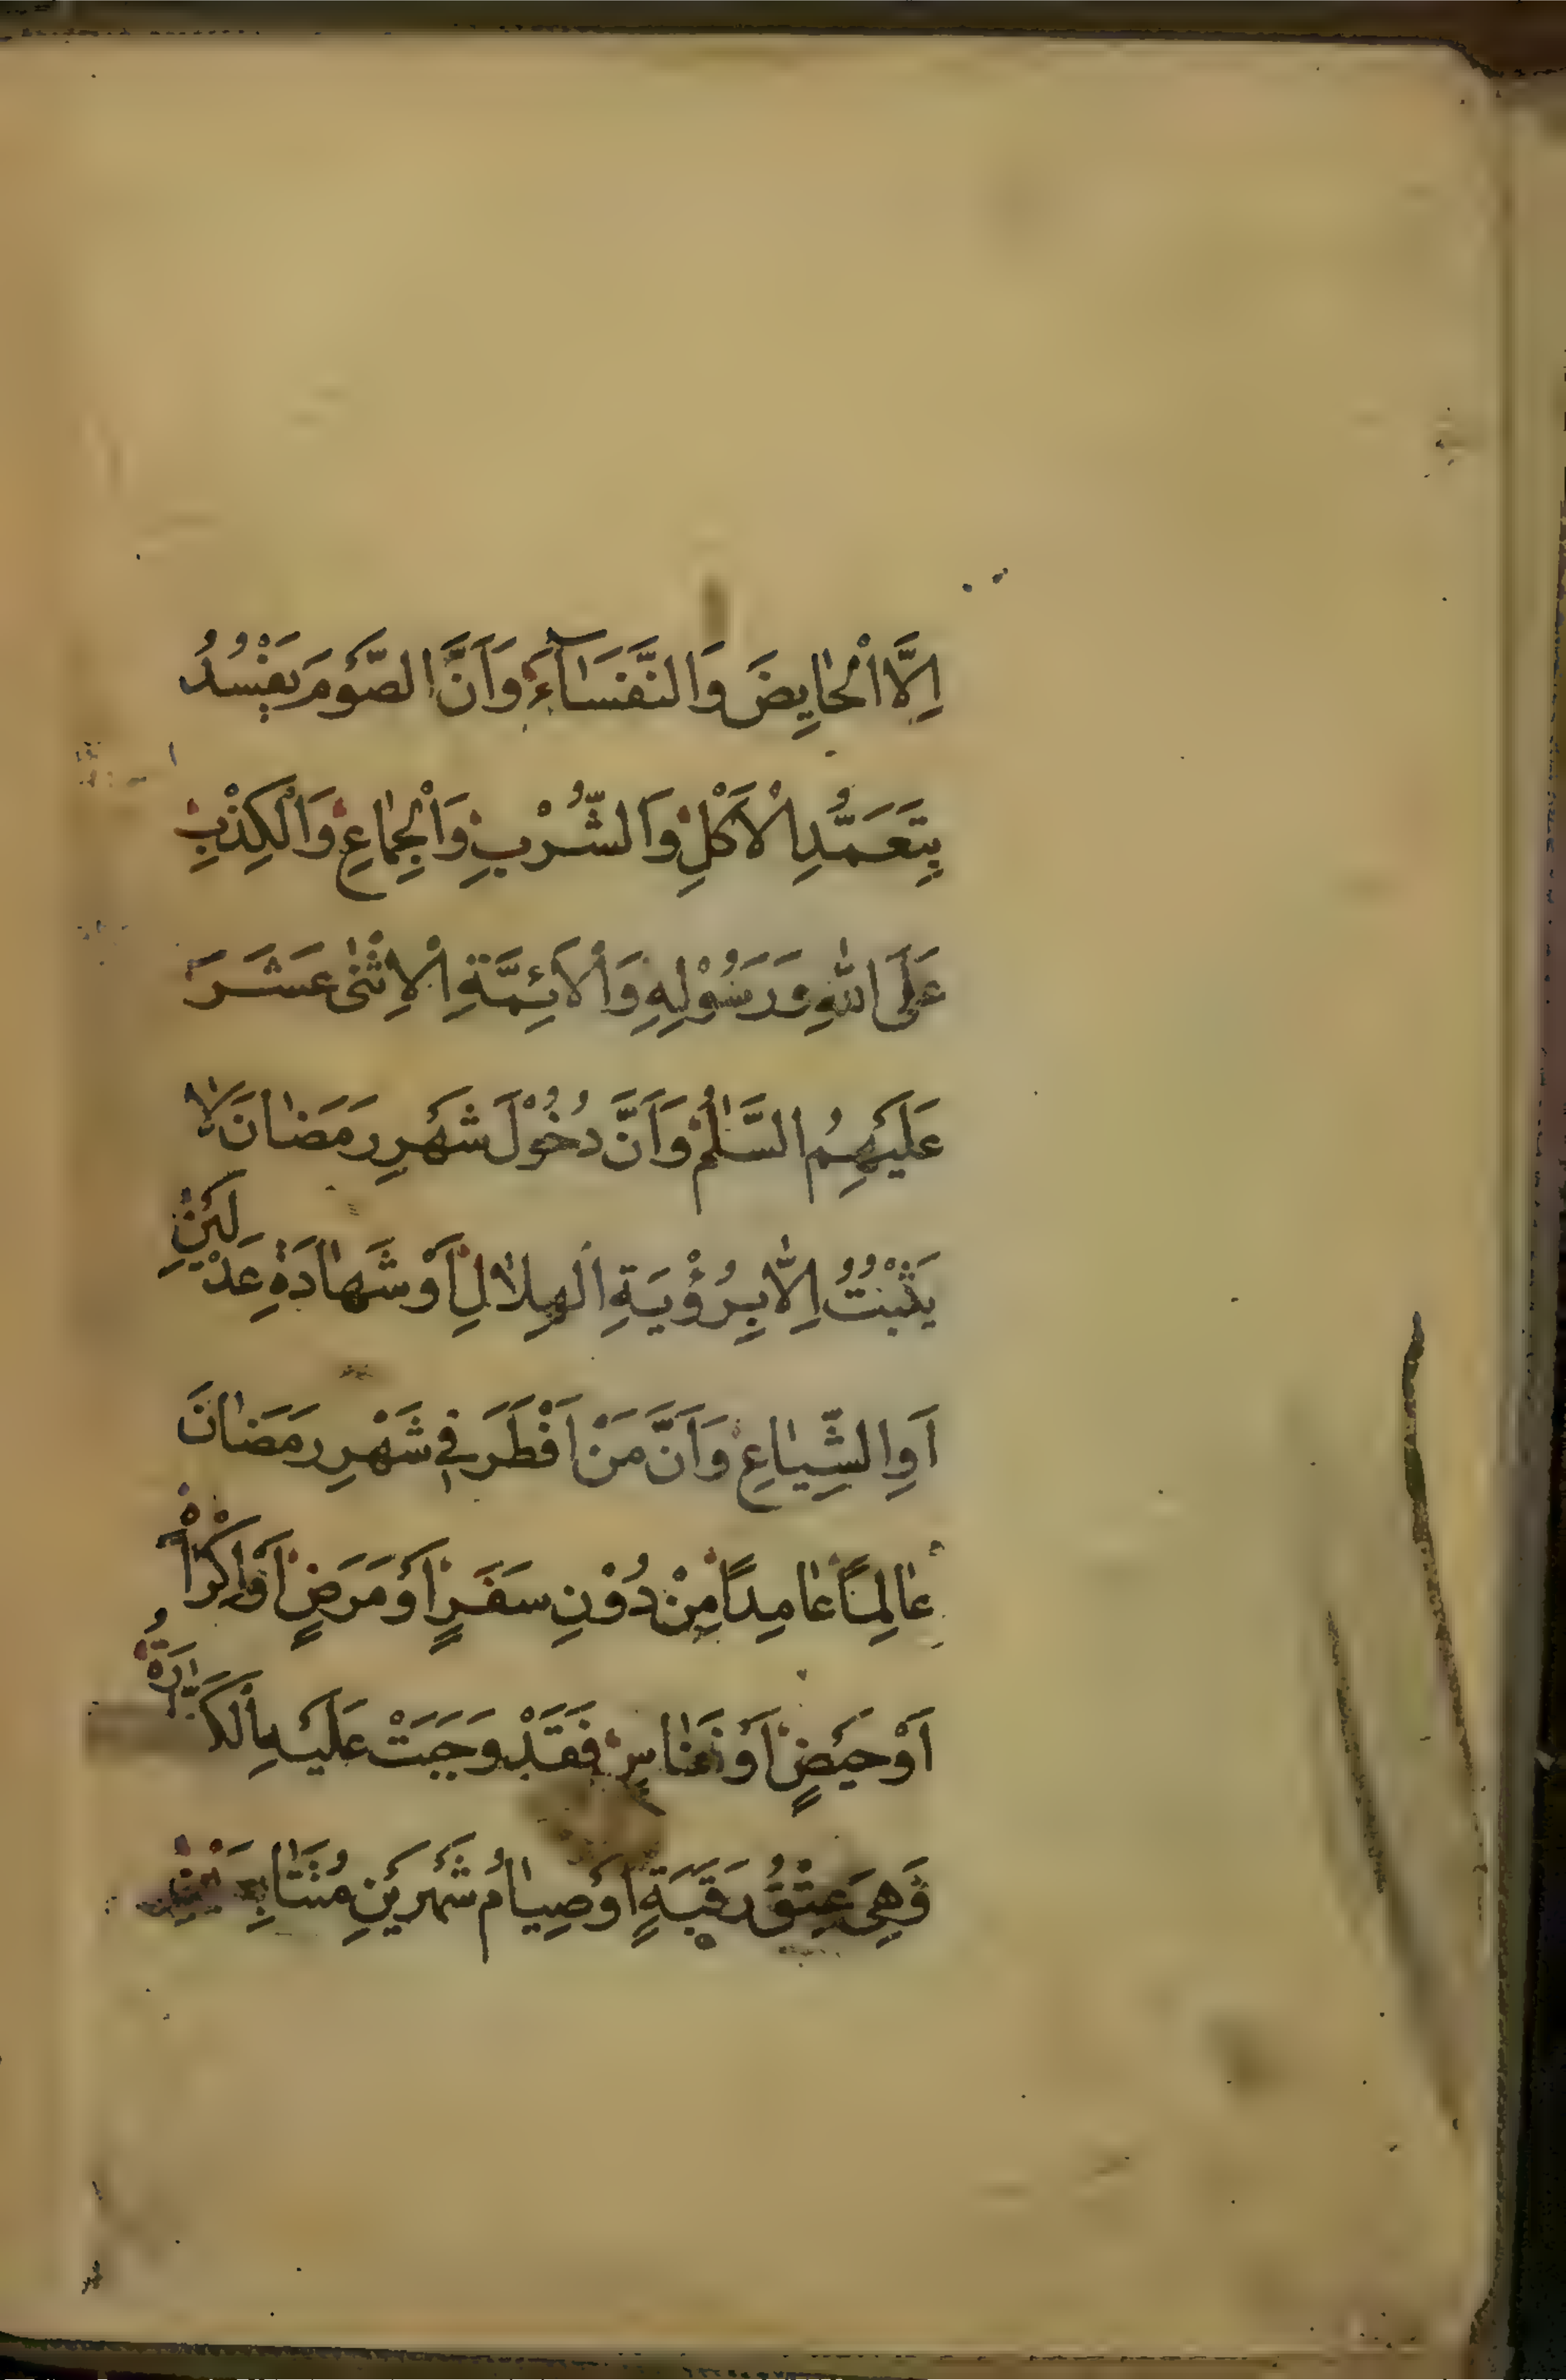 اِلَّا الْحٰايِضَ وَالنَّفَسٰآءَ وَاَنَّ الصَّوْمَ يَفْسُدُ
بِتَعَمُّدِ الْاَكْلِ وَالشُّرْبِ وَالْجِمٰاعِ وَالْكِذْبِ
عَلَى اللّٰهِ وَرَسُوْلِهِ وَالْاَئِمَّةِ الْاِثْنٰى عَشَرَ
عَلَيْهِمُ السَّلٰمُ وَاَنَّ دُخُوْلَ شَهْرِ رَمَضٰانَ لٰا
يَثْبُتُ اِلّٰا بِرُؤْيَةِ الْهِلٰالِ اَوْ شَهٰادَةِ عَدْلَيْنِ
اَوِ الشِّيٰاعِ وَاَنَّ مَنْ اَفْطَرَ فِي شَهْرِ رَمَضٰانَ
عٰالِمًا عٰامِدًا مِنْ دُوْنِ سَفَرٍ اَوْ مَرَضٍ اَوْ اِكْرٰاهٍ
اَوْ حَيْضٍ اَوْ نَفٰاسٍ فَقَدْ وَجَبَتْ عَلَيْهِ الْكَفّٰارَةُ
وَهِيَ عِتْقُ رَقَبَةٍ اَوْ صِيٰامُ شَهْرَيْنِ مُتَتٰابِعَيْنِ